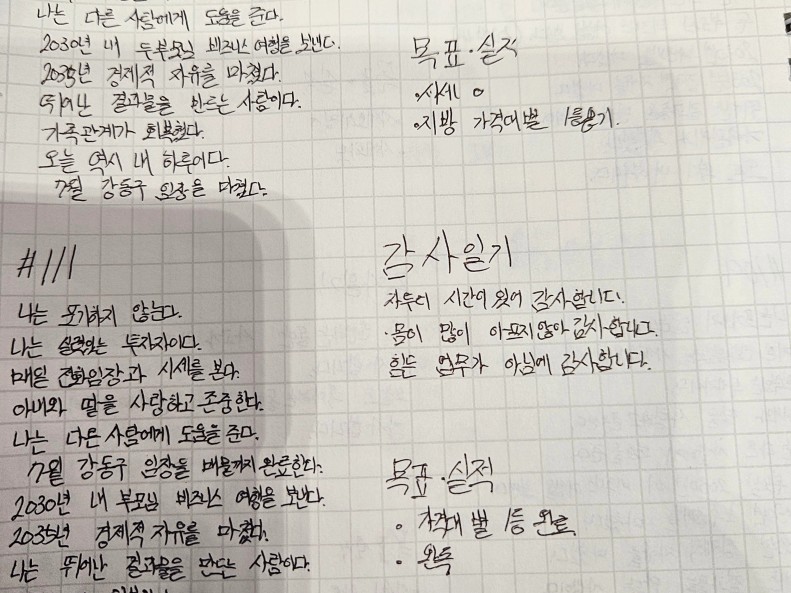 나는 다른 사람에게 도움을 준다.
2030년 내 두부모님 비즈니스 여행을 보낸다.
2035년 경제적 자유를 마쳤다.
뛰어난 결과물을 만드는 사람이다.
가족관계가 회복했다.
오늘 역시 내 하루이다.
7월 강동구 임장을 마쳤다.
목표·실적
•시세 o
•지방 가격대별 1등뽑기.
#111
나는 포기하지 않는다.
나는 실력있는 투자자이다.
매일 전화임장과 시세를 본다.
아내와 딸을 사랑하고 존중한다.
나는 다른 사람에게 도움을 준다.
7월 강동구 임장을 매물까지 완료한다.
2030년 내 부모님 비즈니스 여행을 보낸다.
2035년 경제적 자유를 마쳤다.
나는 뛰어난 결과물을 만드는 사람이다.
감사일기
자투리 시간이 있어 감사합니다.
·몸이 많이 아프지않아 감사합니다.
힘든 업무가 아님에 감사합니다.
목표·실적
• 가격대 별 1등 완료
• 완독